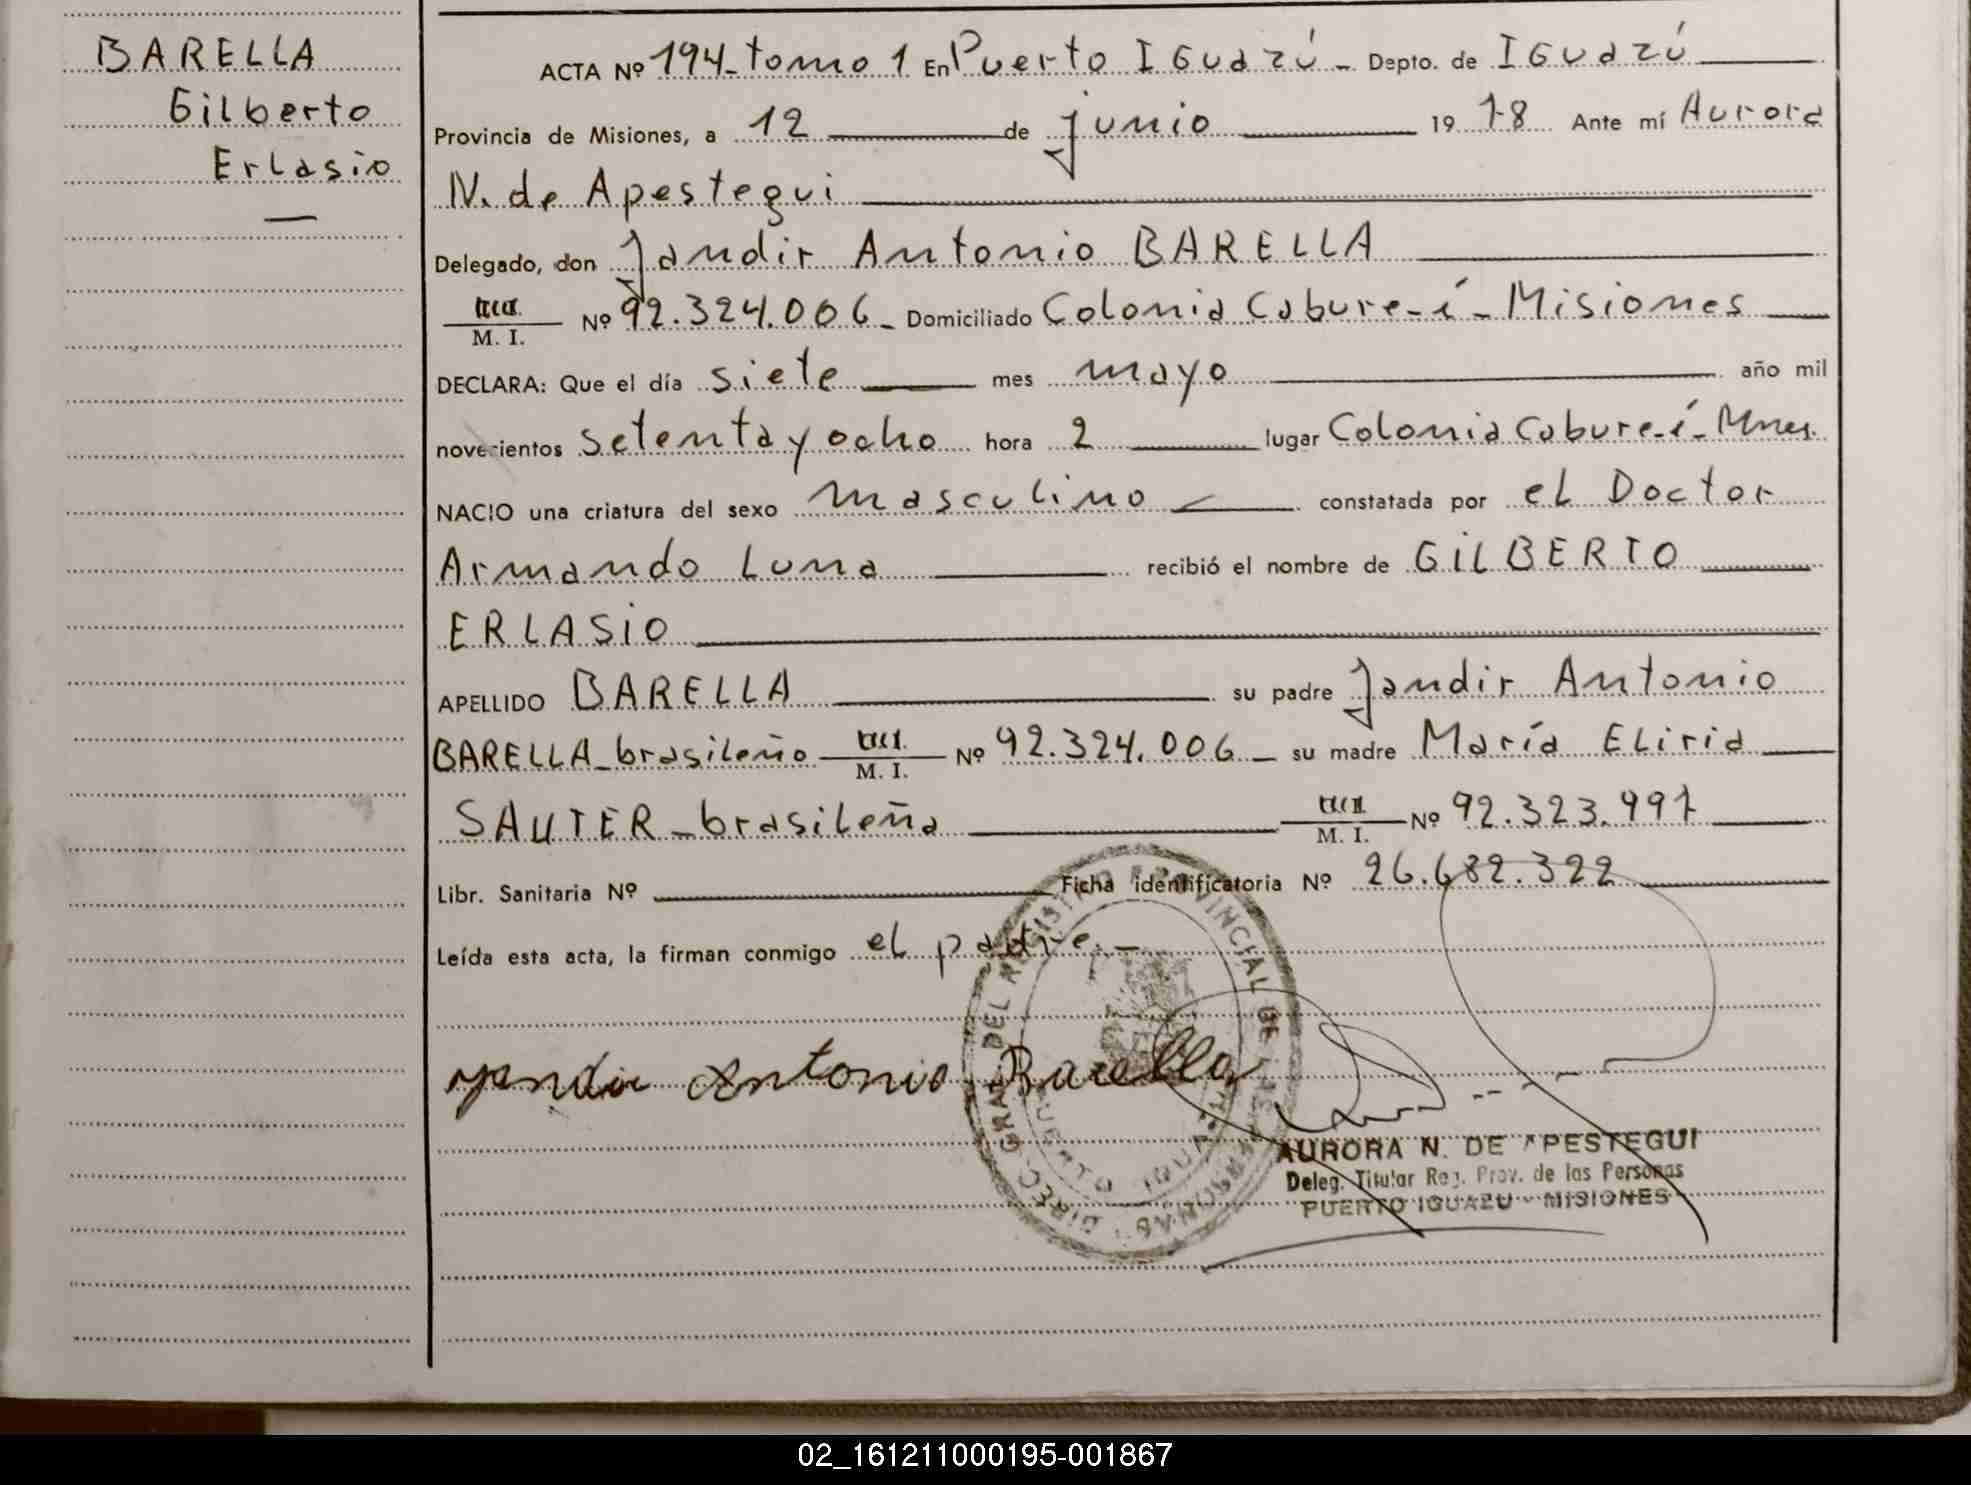 BARELLA
Gilberto
Erlasio
ACTA Nº 194_tomo 1 En Puerto IGuazú_ Depto. de IGuazú
Provincia de Misiones, a 12 de junio 1978 Ante mí Aurora
N. de Apestegui
Delegado, don Jandir Antonio BARELLA
M. I. Nº 92.324.006_ Domiciliado Colonia Cabure-í_Misiones
DECLARA: Que el día siete mes mayo año mil
novecientos setenta y ocho hora 2 lugar Colonia Cabure-í_Mnes.
NACIO una criatura del sexo masculino constatada por el Doctor
Armando Luna recibió el nombre de GILBERTO
ERLASIO
APELLIDO BARELLA su padre Jandir Antonio
BARELLA_brasileño M. I. Nº 92.324.006_ su madre María Eliria
SAUTER_brasileña M. I. Nº 92.323.997
Libr. Sanitaria Nº Ficha identificatoria Nº 26.682.322
Leída esta acta, la firman conmigo el padre._
Jandir Antonio Barella
DIREC. GRAL. DEL REGISTRO PROVINCIAL DE LAS PERSONAS
PUERTO IGUAZU
AURORA N. DE APESTEGUI
Deleg. Titular Reg. Prov. de las Personas
PUERTO IGUAZU - MISIONES
02_161211000195-001867